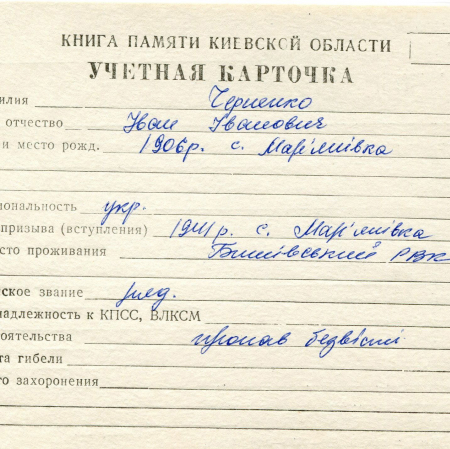 КНИГА ПАМЯТИ КИЕВСКОЙ ОБЛАСТИ
УЧЕТНАЯ КАРТОЧКА
илия Черненко
отчество Іван Іванович
и место рожд. 1906р. с. Мар'янівка
иональность укр.
призыва (вступления) 1941р. с. Мар'янівка
сто проживания РВК
ское звание ряд.
надлежность к КПСС, ВЛКСМ
оятельства пропав безвісті
та гибели
о захоронения